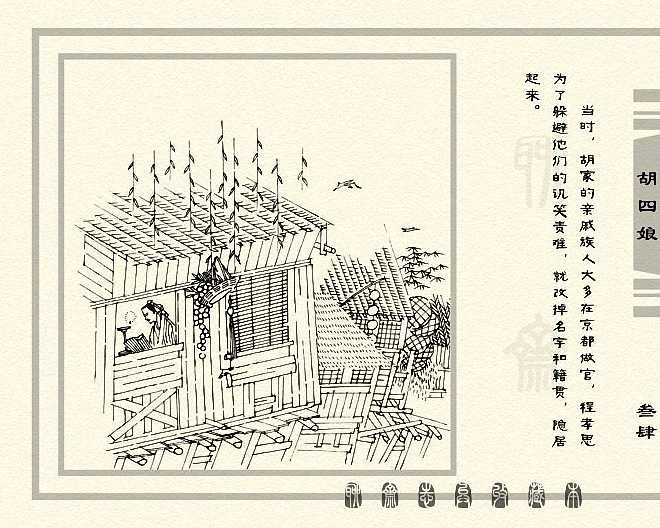 当时，胡家的亲戚族人大多在京都做官，程孝思
为了躲避他们的讥笑责难，就改掉名字和籍贯，隐居
起来。
胡四娘
叁肆
聊斋志异收藏本